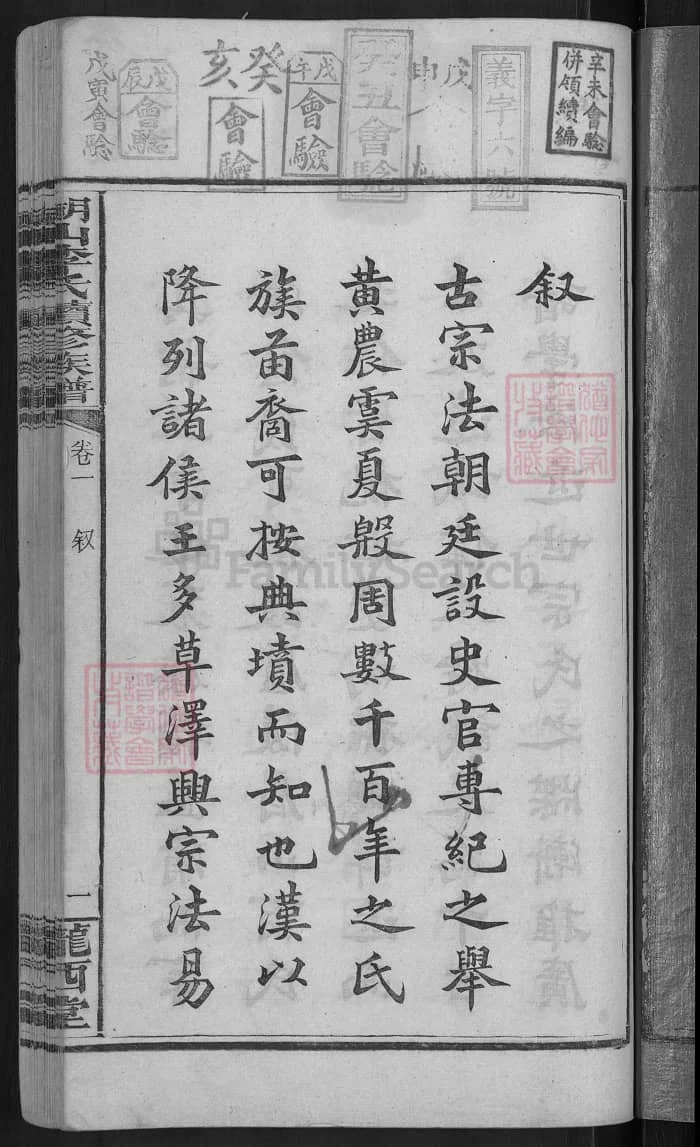 辛未會驗
併領續編
義字六號
戊申
癸丑會驗
戊午
會驗
癸亥
會驗
戊辰
會驗
戊寅會驗
叙
古宗法朝廷設史官專紀之舉
黃農虞夏殷周數千百年之氏
族苗裔可按典墳而知也漢以
降列諸侯王多草澤興宗法易
李氏續修族譜
卷一
叙
一
隴西堂
FamilySearch